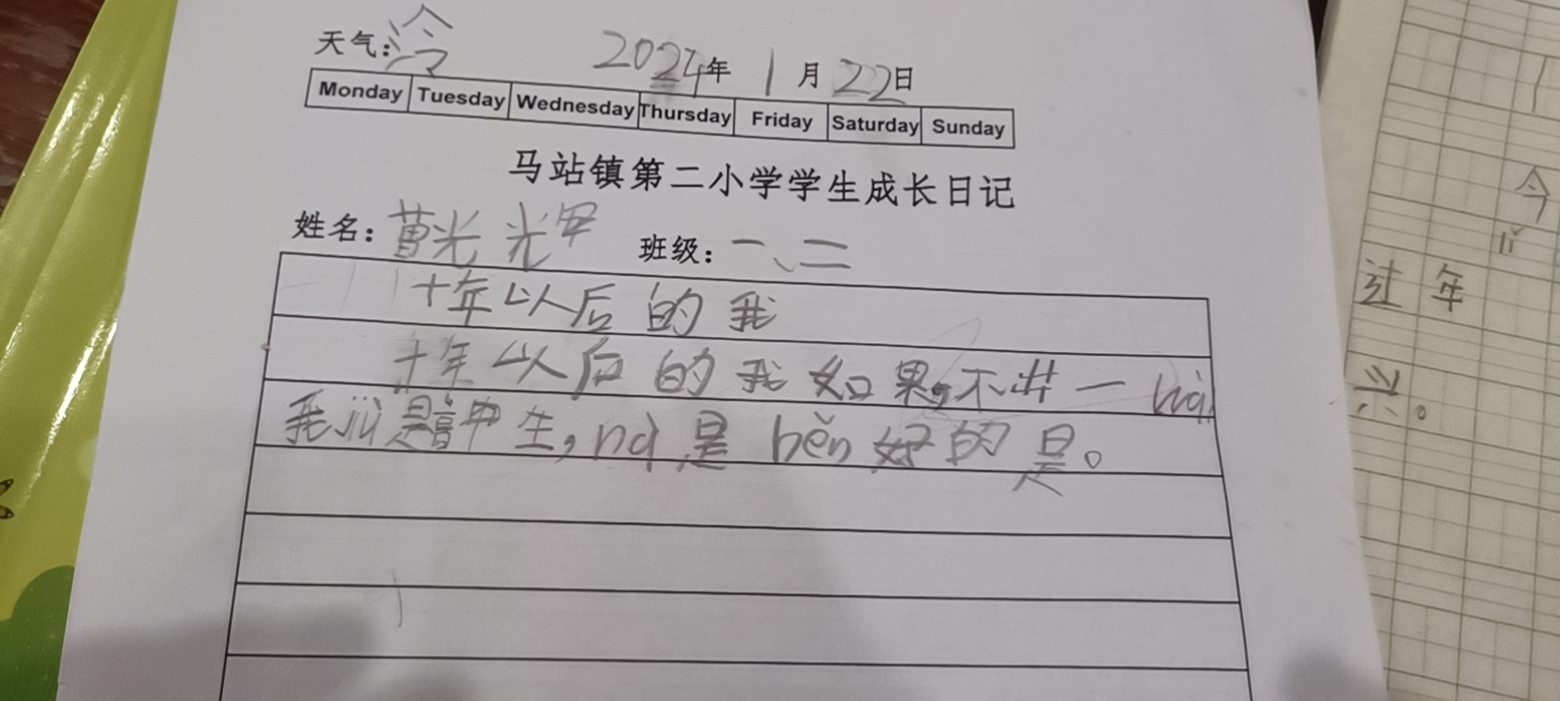 天气：冷 2024年 1月 22日
Monday Tuesday Wednesday Thursday Friday Saturday Sunday
马站镇第二小学学生成长日记
姓名： 光 光 班级：一、二
十年以后的我
十年以后的我如果,不 一
我jiù是 中生,nà是hěn好的是。
今
过年
兴。